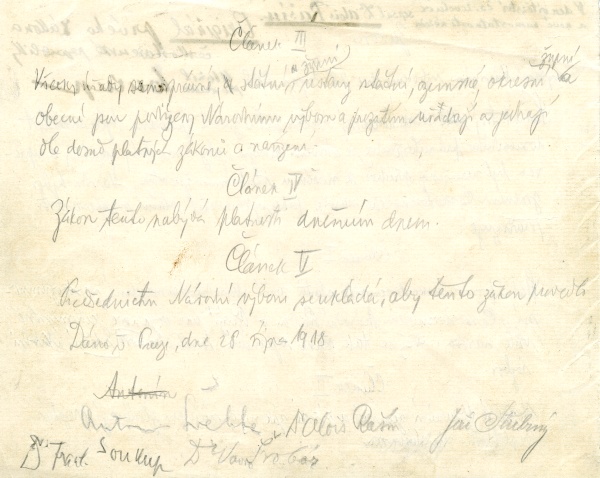 Článek III
župní
Všecky úřady samosprávné, státní a župní, ústavy státní, zemské, okresní a
obecní jsou podřízeny Národnímu výboru a prozatím úřadují a jednají
dle dosud platných zákonů a nařízení.
Článek IV
Zákon tento nabývá platnosti dnešním dnem.
Článek V
Předsednictvu Národní výboru se ukládá, aby tento zákon provedlo
Dáno v Praze, dne 28 října 1918
Antonín
Antonín Švehla Dr Alois Rašín Jiří Stříbrný
Dr Frant. Soukup Dr Vavro Šrobár